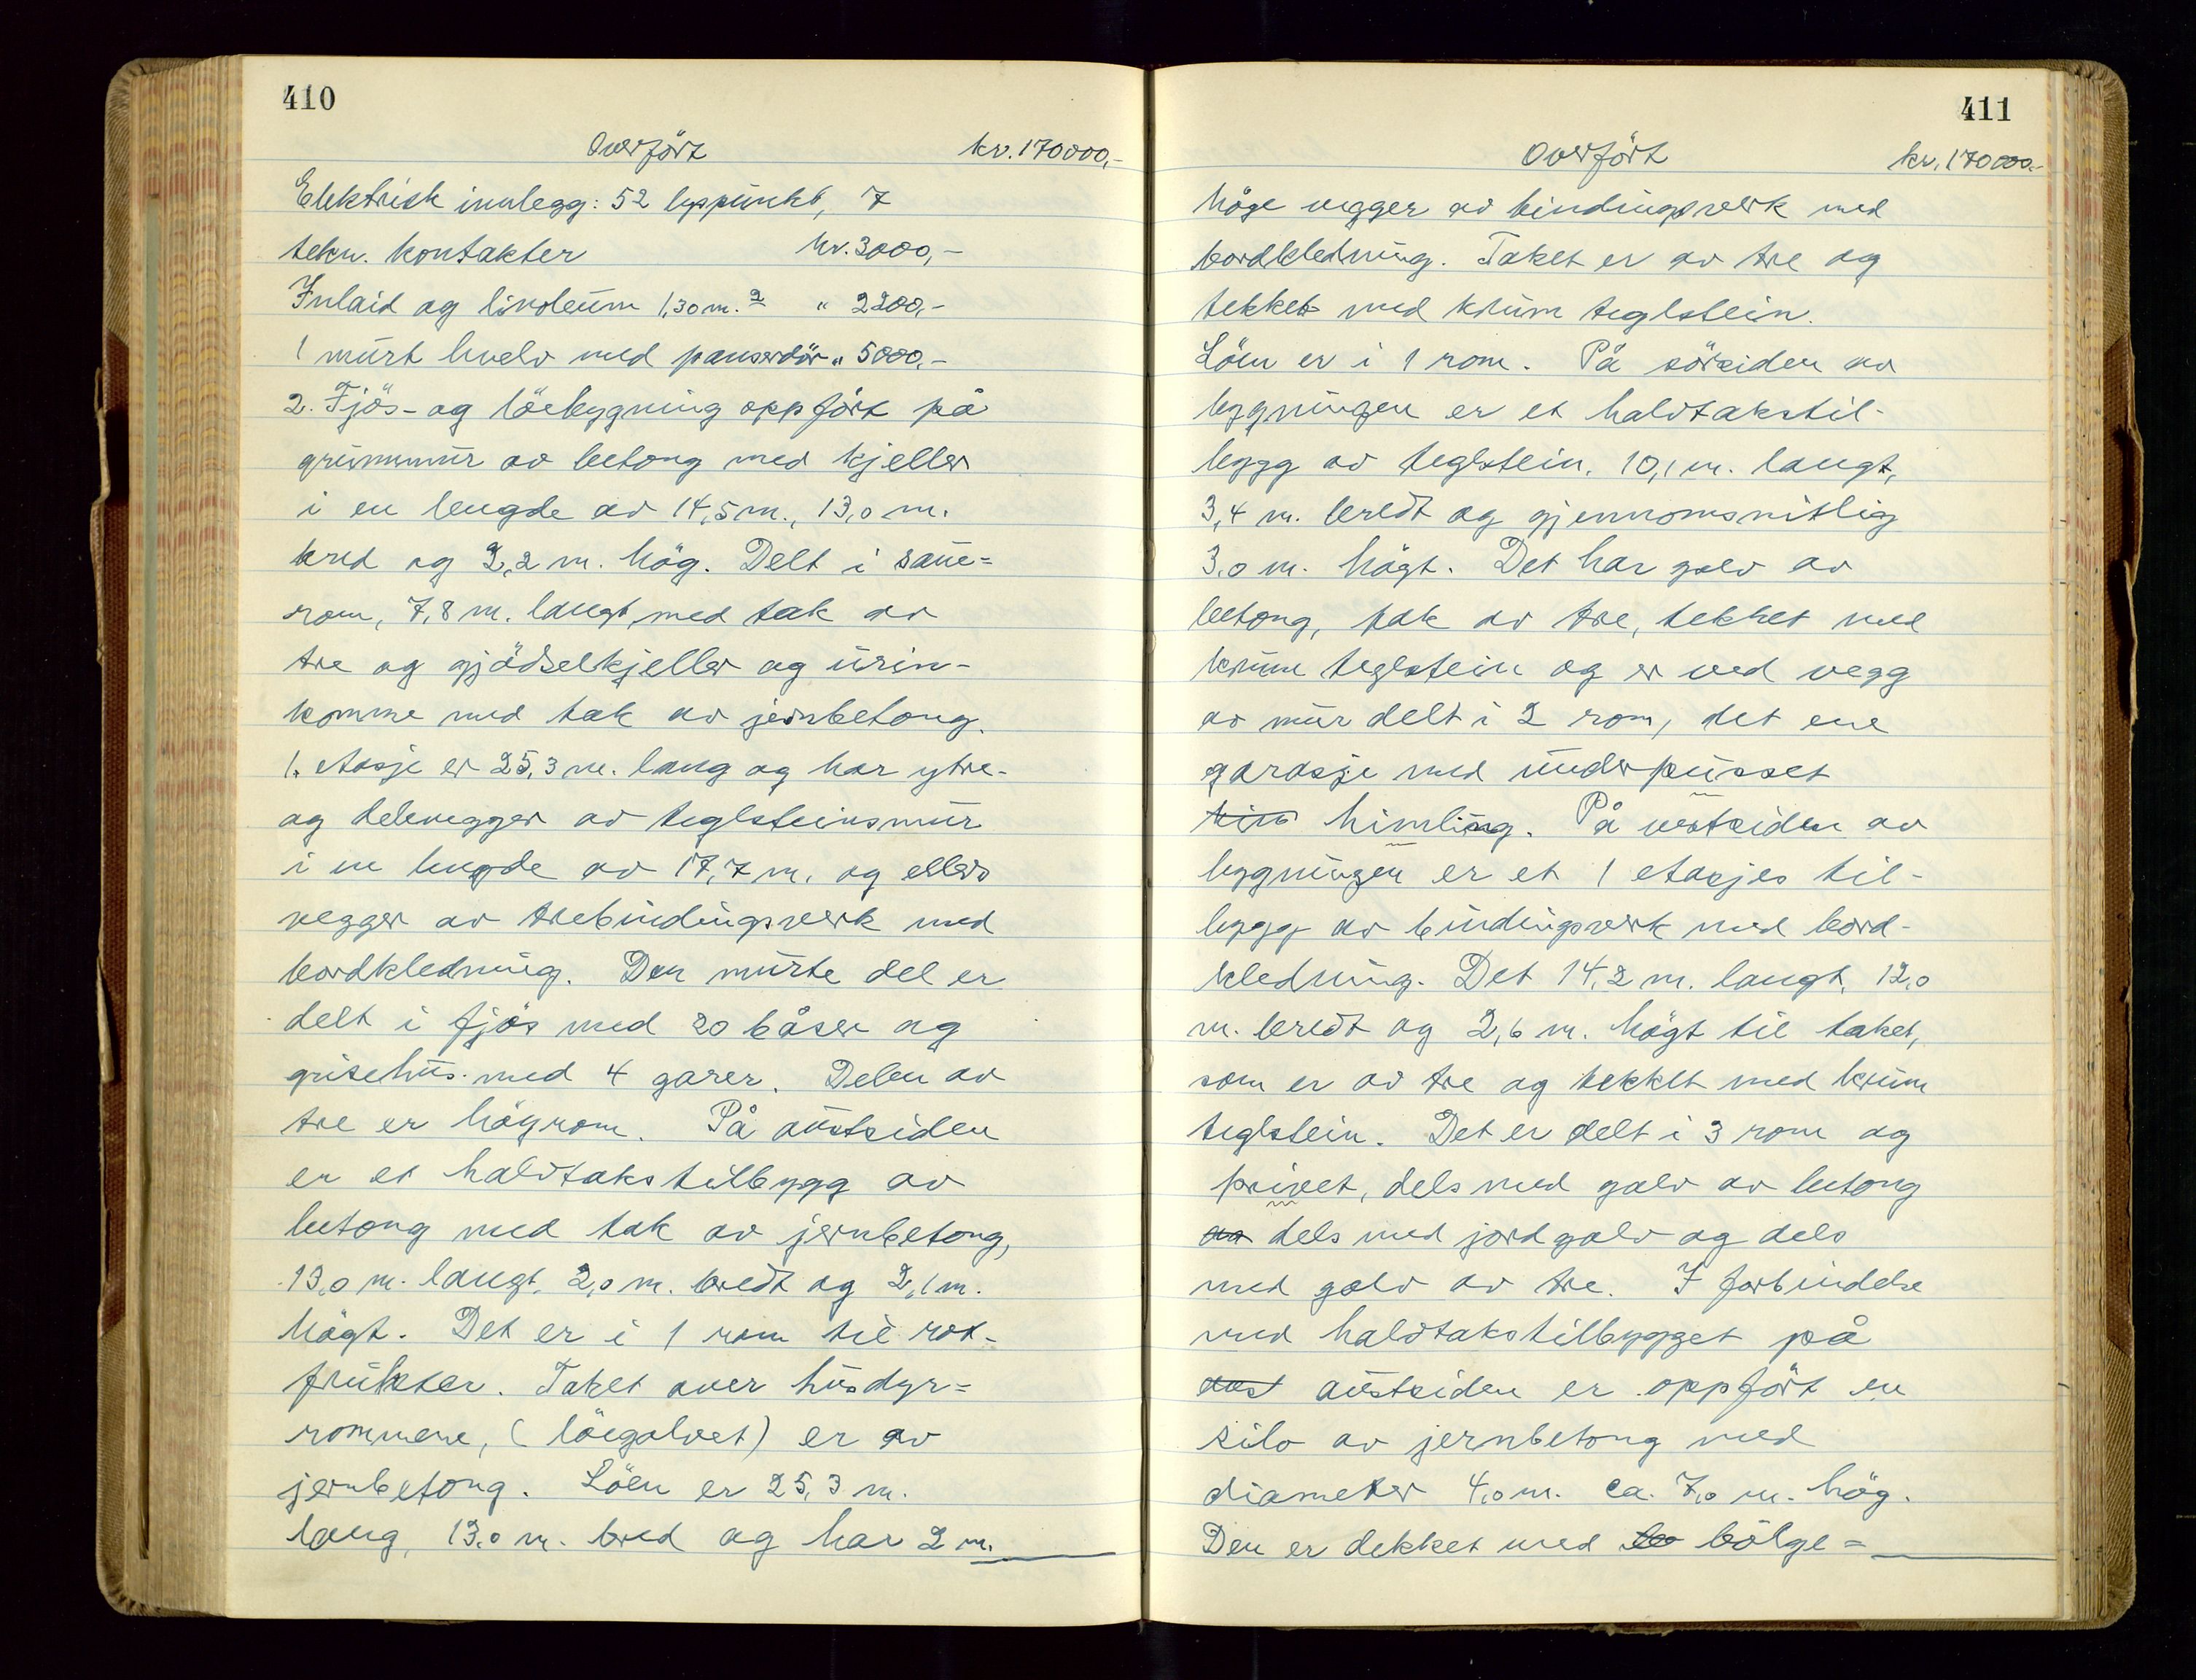 410
Overfört kr. 170000,-
Elektrisk innlegg: 52 lyspunkt, 7
tekn. kontakter kr. 3000,-
Inlaid og linoleum 130 m.2 " 2200,-
1 murt hvelv med panserdör " 5000,-
2. Fjös- og löebygning oppfört på
grunnmur av betong med kjeller
i en lengde av 14,5 m., 13,0 m.
bred og 2,2 m. hög. Delt i saue=
rom, 7,8 m. langt, med tak av
tre og gjödselkjeller og urin-
komme med tak av jernbetong.
1. etasje er 25,3 m. lang og har ytre-
og delevegger av teglsteinsmur
i en lengde av 17,7 m. og ellers
vegger av trebindingsverk med
bordkledning. Den murte del er
delt i fjös med 20 båser og
grisehus med 4 garer. Delen av
tre er högrom. På austsiden
er et halvtakstilbygg av
betong med tak av jernbetong,
13,0 m. langt, 2,0 m. bredt og 2,1 m.
högt. Det er i 1 rom til rot-
frukter. Taket over husdyr=
rommene, (löegolvet) er av
jernbetong. Löen er 25,3 m.
lang, 13,0 m. bred og har 2 m.
411
Overfört kr. 170000.-
höge vegger av bindingsverk med
bordkledning. Taket er av tre og
tekket med krum teglstein.
Löen er i 1 rom. På sörsiden av
bygningen er et halvtakstil-
bygg av teglstein, 10,1 m. langt,
3,4 m. bredt og gjennomsnitlig
3,0 m. högt. Det har golv av
betong, tak av tre, tekket med
krum teglstein og er ved vegg
av mur delt i 2 rom, det ene
garasje med underpusset
himling. På vestsiden av
bygningen er et 1 etasjes til-
bygg av bindingsverk med bord-
kledning. Det 14,2 m. langt, 12,0
m. bredt og 2,6 m. högt til taket,
som er av tre og tekket med krum
teglstein. Det er delt i 3 rom og
privet, dels med golv av betong
dels med jordgolv og dels
med golv av tre. I forbindelse
med halvtakstilbygget på
aust austsiden er oppfört en
silo av jernbetong med
diameter 4,0 m. ca. 7,0 m. hög.
Den er dekket med bölge=